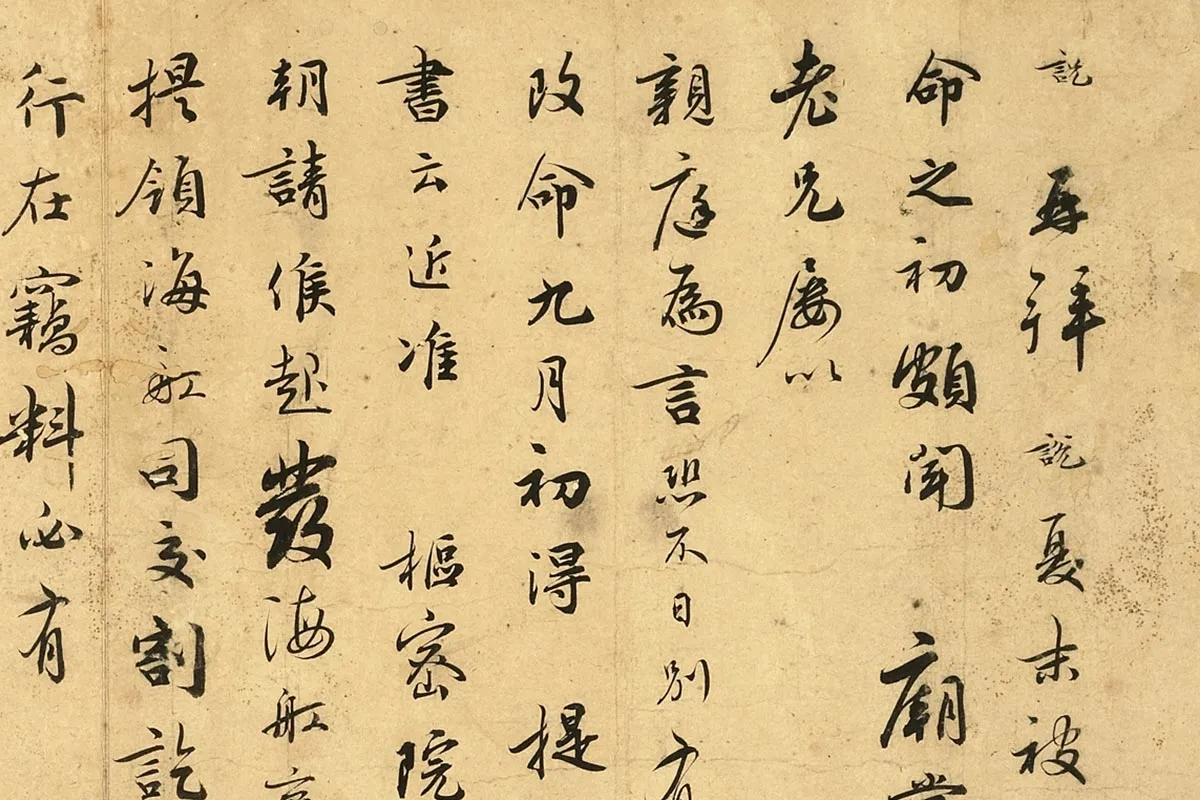 說再拜說夏末被
命之初頗聞廟堂
老兄屢以
親庭為言恐不日別有
改命九月初得提
書云近准樞密院
朝請俟起發海舡
提領海舡司交割訖
行在竊料必有